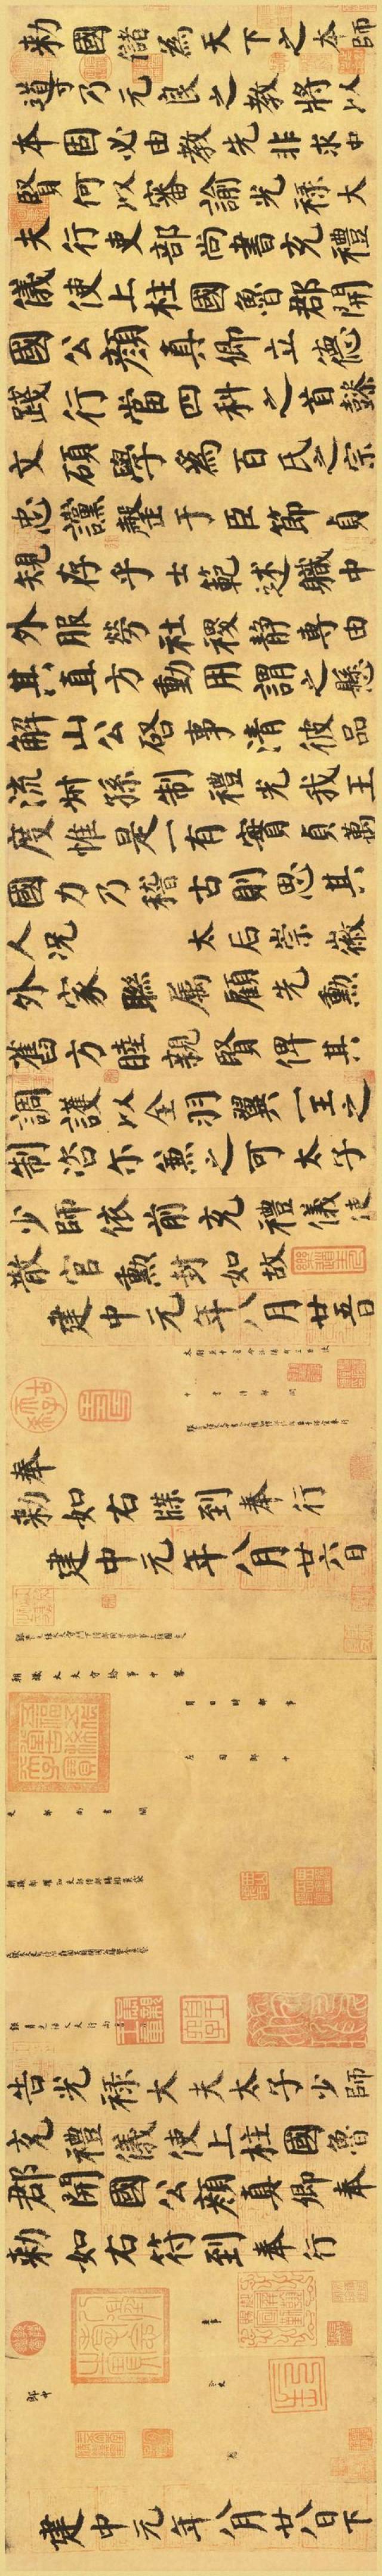 勅國儲為天下之本師
導乃元良之教將以
本固必由教先非求中
賢何以審諭光祿大
夫行吏部尚書充禮
儀使上柱國魯郡開
國公顏真卿立德
踐行當四科之首懿
文碩學為百氏之宗
忠讜罄于臣節貞
規存乎士範述職中
外服勞社稷靜專由
其直方動用謂之懸
解山公啓事清彼品
流叔孫制禮光我王
度惟是一有實貞萬
國力乃稽古則思其
人況 太后崇徽
外家聯屬顧先勳
舊方睦親賢俾其
調護以全羽翼一王之
制咨尔兼之可太子
少師依前充禮儀使
散官勳封如故
建中元年八月廿五日
奉
勅如右牒到奉行
建中元年八月廿六日
左司郎中
吏部尚書闕
告光祿大夫太子少師
充禮儀使上柱國魯
郡開國公顏真卿奉
勅如右符到奉行
主事
郎中 令史
建中元年八月廿八日下